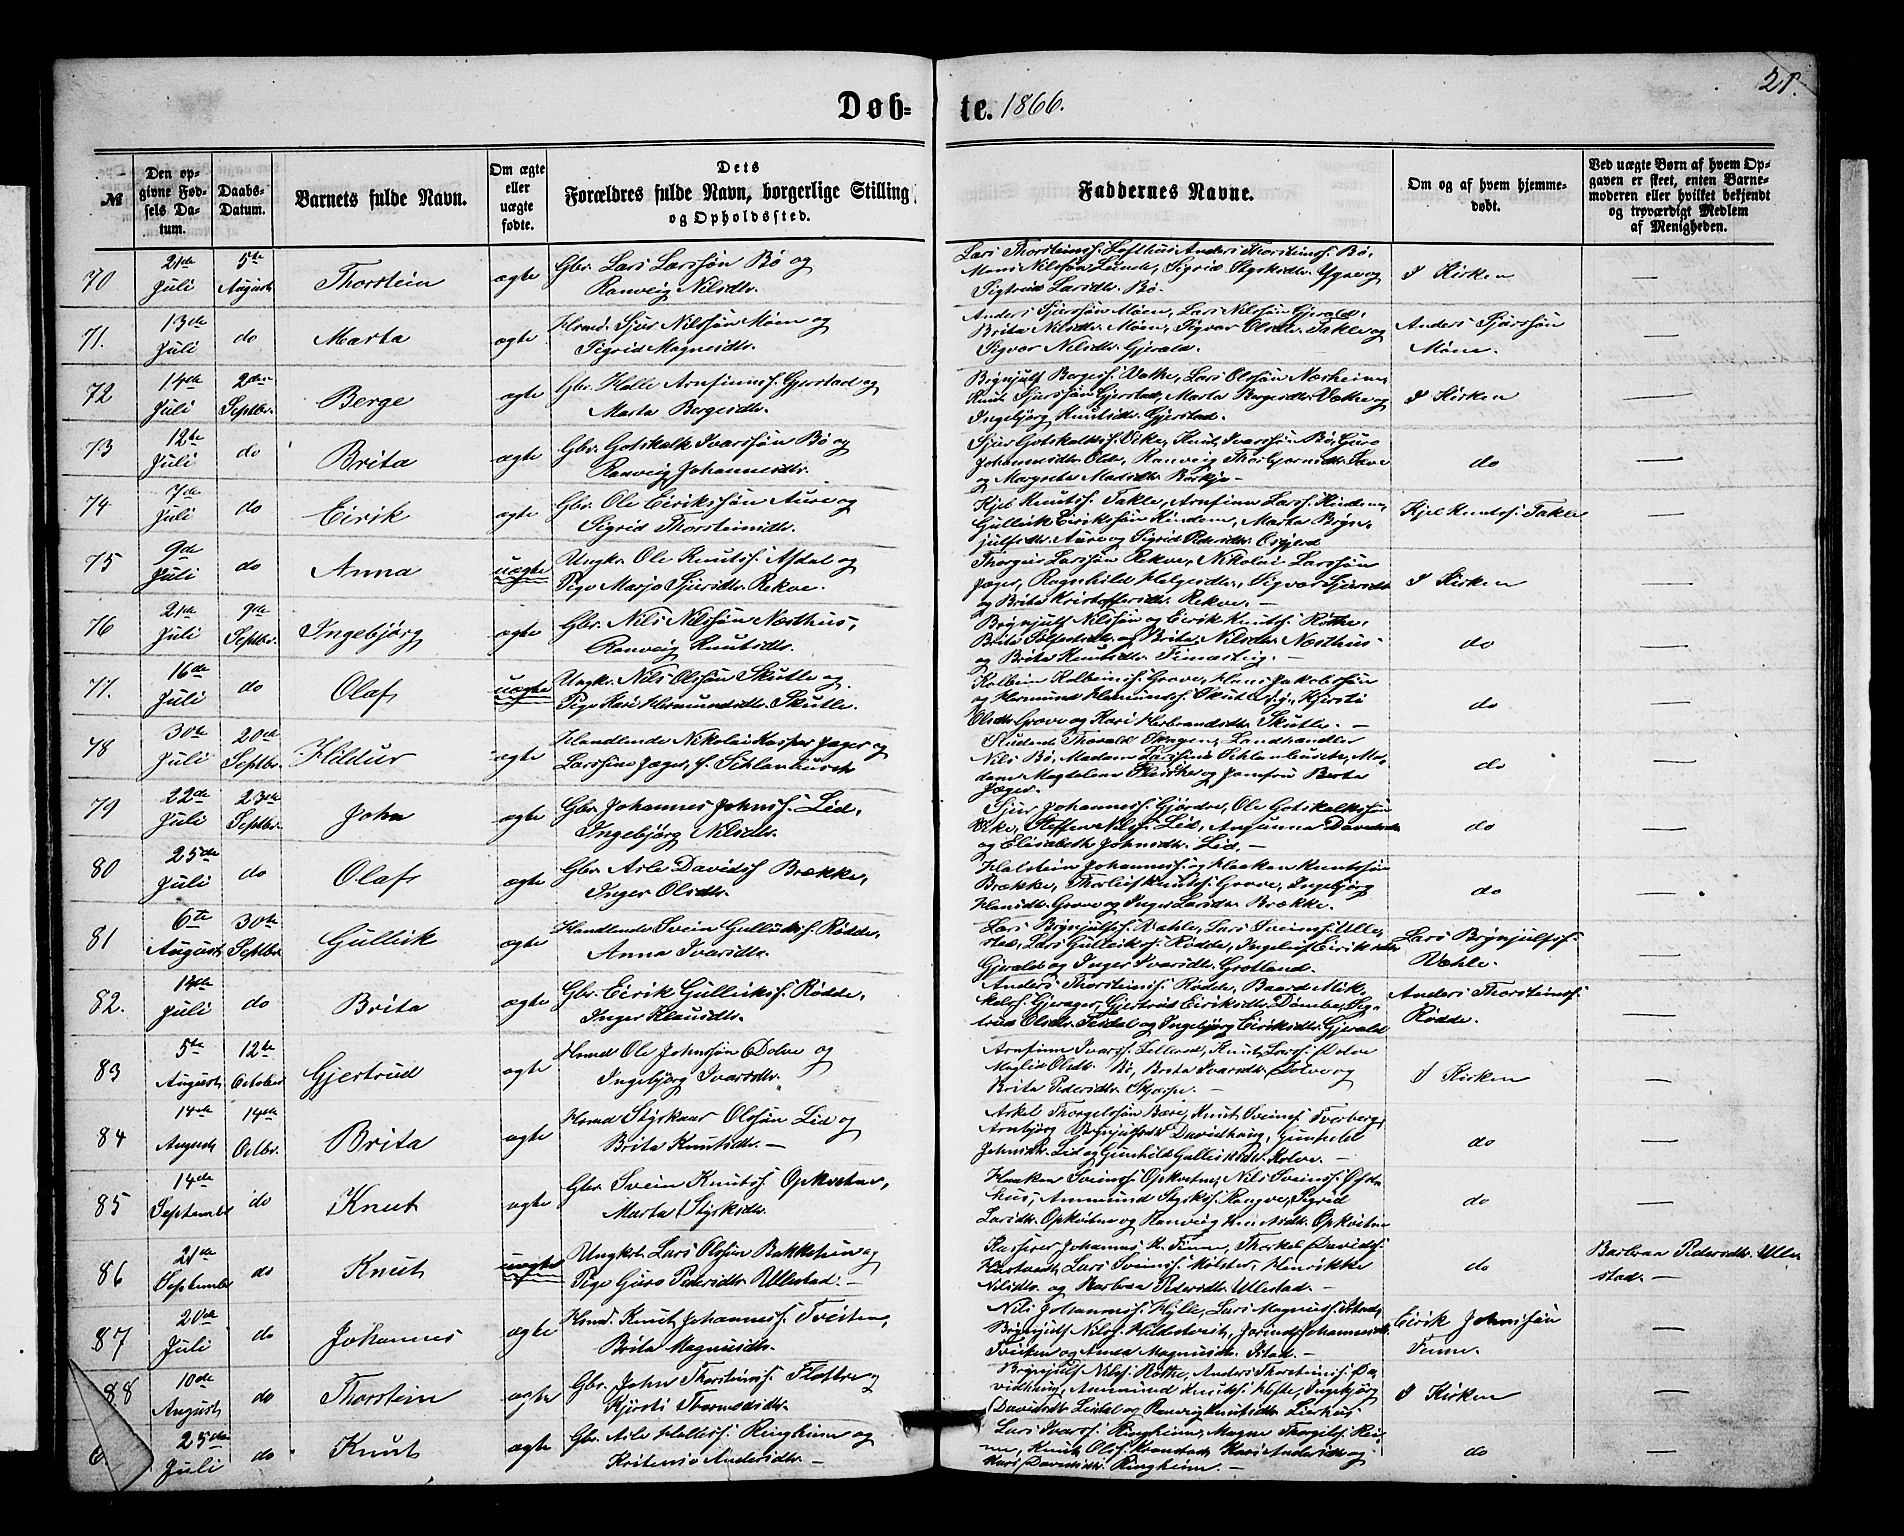 Døb=te. 1866.
21.
№
Den opgivne Fødsels Datum.
Daabs-Datum.
Barnets fulde Navn.
Om ægte eller uægte fødte.
Dets Forældres fulde Navn, borgerlige Stilling og Opholdssted.
Faddernes Navne.
Om og af hvem hjemmedøbt.
Ved uægte Børn af hvem Opgaven er skeet, enten Barnemoderen eller hvilket bekjendt og troværdigt Medlem af Menigheden.
70 21de Juli 5te August Thorstein ægte Gbr. Lars Larssøn Bø og
Ranveig Nilsdtr.
Lars Thorsteinss. Lofthus, Anders Thorsteinss. Bø,
Mons Nilssøn Lunde, Sigrid Styrksdtr. Ygre og
Sigtrud Larsdtr. Bø.
I Kirken —
71. 13de Juli do Marta ægte Husmd. Sjur Nilssøn Møen og
Sigrid Magnesdtr.
Anders Sjurssøn Møen, Lars Nilssøn Gjerald,
Brita Nilsdtr. Møen, Sigvor Olsdtr. Takle og
Sigvor Nilsdtr. Gjerald.
Anders Sjurssøn
Møen. —
72 14de Juli 2den Septbr. Berge ægte Gbr. Helle Arnfinnss. Gjerstad og
Marta Bergesdtr.
Brynjulf Bergess. Væthe, Lars Olssøn Næsheim,
Knut Sjurssøn Gjerstad, Marta Bergesdtr. Væthe og
Ingebjørg Knutsdtr. Gjerstad.
I Kirken —
73 12te Juli do Brita ægte Gbr. Gotskalk Ivarssøn Bø og
Ranveig Johannesdtr.
Sjur Gotskalkss. , Knut Ivarssøn Bø, Guro
Johannesdtr. , Ranveig Thorbjørnsdtr.
og Margreta Madsdtr.
do —
74 7de Juli do Eirik ægte Gbr. Ole Eirikssøn Aure og
Sigrid Thorsteinsdtr.
Kjel Knutss. Takle, Arnfinn Larss. Kindem,
Gulleik Eirikssøn Kindem, Marta Bryn-
julfsdtr. Aure og Sigrid Pedersdtr.
Kjel Knutss. Takle —
75 9de Juli do Anna uægte Ungkr. Ole Knutss. Afdal og
Pige Marjo Sjursdtr. Rekve.
Thorgier Larssøn Rekve, Nikolai Larssøn
Jæger, Ragnhild Helgesdtr., Sigvor Sjursdtr.
og Brita Kristoffersdtr. Rekve. —
I Kirken —
76 21de Juli 9de Septbr. Ingebjörg ægte Gbr. Nils Nilssøn Næsthus,
Ranveig Knutsdtr.
Brynjulf Nilssøn og Eirik Knutss. Røthe,
Brita og Brita Nilsdtr. Næsthus
og Brita Knutsdtr. —
do —
77. 16de Juli do Olaf uægte Ungkr. Nils Olssøn Skutle og
Pige Kari Hermundsdtr. Skutle.
Kolbein Kolbeinss. Grove, Hans Jakobssøn
og Hermund Hermundss. Skutle, Pig. Kjersti
Olsdtr. Grove og Kari Herbrandsdtr. Skutle. —
do —
78 30te Juli 20de Septbr. Hildur ægte Handlende Nikolai Kasper Jæger og
Larssine Jæger, f. Schlanbusch
Student Thorvald , Landhandler
Nils Bø, Madam Larssine Schlanbusch, Ma-
dam Magdalena Fleischer og Jomfru Berta
Jæger.
do —
79 22de Juli 23de Septbr. John ægte Gbr. Johannes Johnss. Lid,
Ingebjørg Nilsdtr.
Sjur Johanness. Gjerdre, Ole Gotskalkssøn
, Steffen Nilss. Lid, Davidsdtr.
og Elisabeth Johnsdtr. Lid. —
do —
80 25de Juli do Olaf ægte Gbr. Arle Davidss Brække,
Inger Olsdtr.
Halstein Johanness. og Haakon Knutssøn
Brække, Thorleif Knutss. Grove, Ingebjørg
Hansdtr. Grove og Inger Larsdtr. Brække.
do —
81 6te August 30te Septbr Gullik ægte Handlende Svein Gulliks. Rødde,
Anna Ivarsdtr.
Lars Brynjulfss. Væhle, Lars Sveinss. Ulle-
stad, Lars Gulleikss. Rødde, Ingeleif Eiriksdtr.
Gjerald og Inger Ivarsdtr. Grotland.
Lars Brynjulfss.
Væhle. —
82. 14de Juli do Brita ægte Gbr. Eirik Gulliks. Rødde,
Inger Klausdtr.
Anders Thorsteinss. Rødde, Baard Mik-
kelss. Gjerager, Gjertrud Eiriksdtr. Dømbe, Gjer-
trud Olsdtr. og Ingebjørg Eiriksdtr. Gjerald
Anders Thorsteinss.
Rødde. —
83 5te August 12te October Gjertrud ægte Husmd Ole Johnssøn Dolve og
Ingebjørg Ivarsdtr.
Arnfinn Ivarss. , Knut Larss. Dolve
Maglid Olsdtr. Bø, Brita Ivarsdtr. Dolve og
Brita Pedersdtr. Skjerpe. —
I Kirken —
84 14de August 14de Octbr. Brita ægte Husmd Styrkaar Olssøn Lid og
Brita Knutsdtr. —
Askel Thorgelssøn , Knut Sveinss. Tverberg,
Arnbjørg Brynjulfsdtr. Davidhaug, Gunhild
Johnsdtr. Lid og Gunhild Gulleiksdtr. —
do —
85 14de September do Knut ægte Gbr. Svein Knutss Opkvitne,
Marta Styrksdtr.
Haaken Sveinss. Opkvitne, Nils Sveinss.
hus, Ammund Styrkss. Rongve, Sigrid
Larsdtr. Opkvitne og Ranveig Knutsdtr. Opkvitne
do —
86 21de September do Knut uægte Ungkr. Lars Olssøn Bakkethun og
Pige Guro Pedersdtr. Ullestad. —
Kasserer Johannes K. Finne, Thorkel Davidss.
, Lars Sveinss. Mølster, Henrikke
Nilsdtr. og Barbraa Pedersdtr. Ullestad. —
do
Barbraa Pedersdtr. Ulle-
stad. —
87 20de Juli do Johannes ægte Husmd. Knut Johanness. Tveiten,
Brita Magnusdtr.
Nils Johanness. Hylle, Lars Magness. Istad,
Brynjulf Nilss. Hildestveit, Jorind Johannesdtr.
Tveiten og Anna Magnusdtr. Istad. —
Eirik Johnssøn
Finne. —
88 10de August do Thorstein ægte Gbr. John Thorsteinss. Flatre og
Kjersti Tormodsdtr.
Brynjulf Nilss. Røthe, Anders Thorsteinss. Da-
vidhaug, Ammund Knutss. , Ingebjørg
Davidsdtr. og Ranveig Knutsdtr.
I Kirken —
25de Juli do Knut ægte Gbr. Arle Helless. Ringheim og
Andersdtr. —
Lars Ivarss. Ringheim, Magne Thorgilss.
, Knut Olss. , Kari Andersdtr. og
Kari Davidsdtr. Ringheim. —
do —